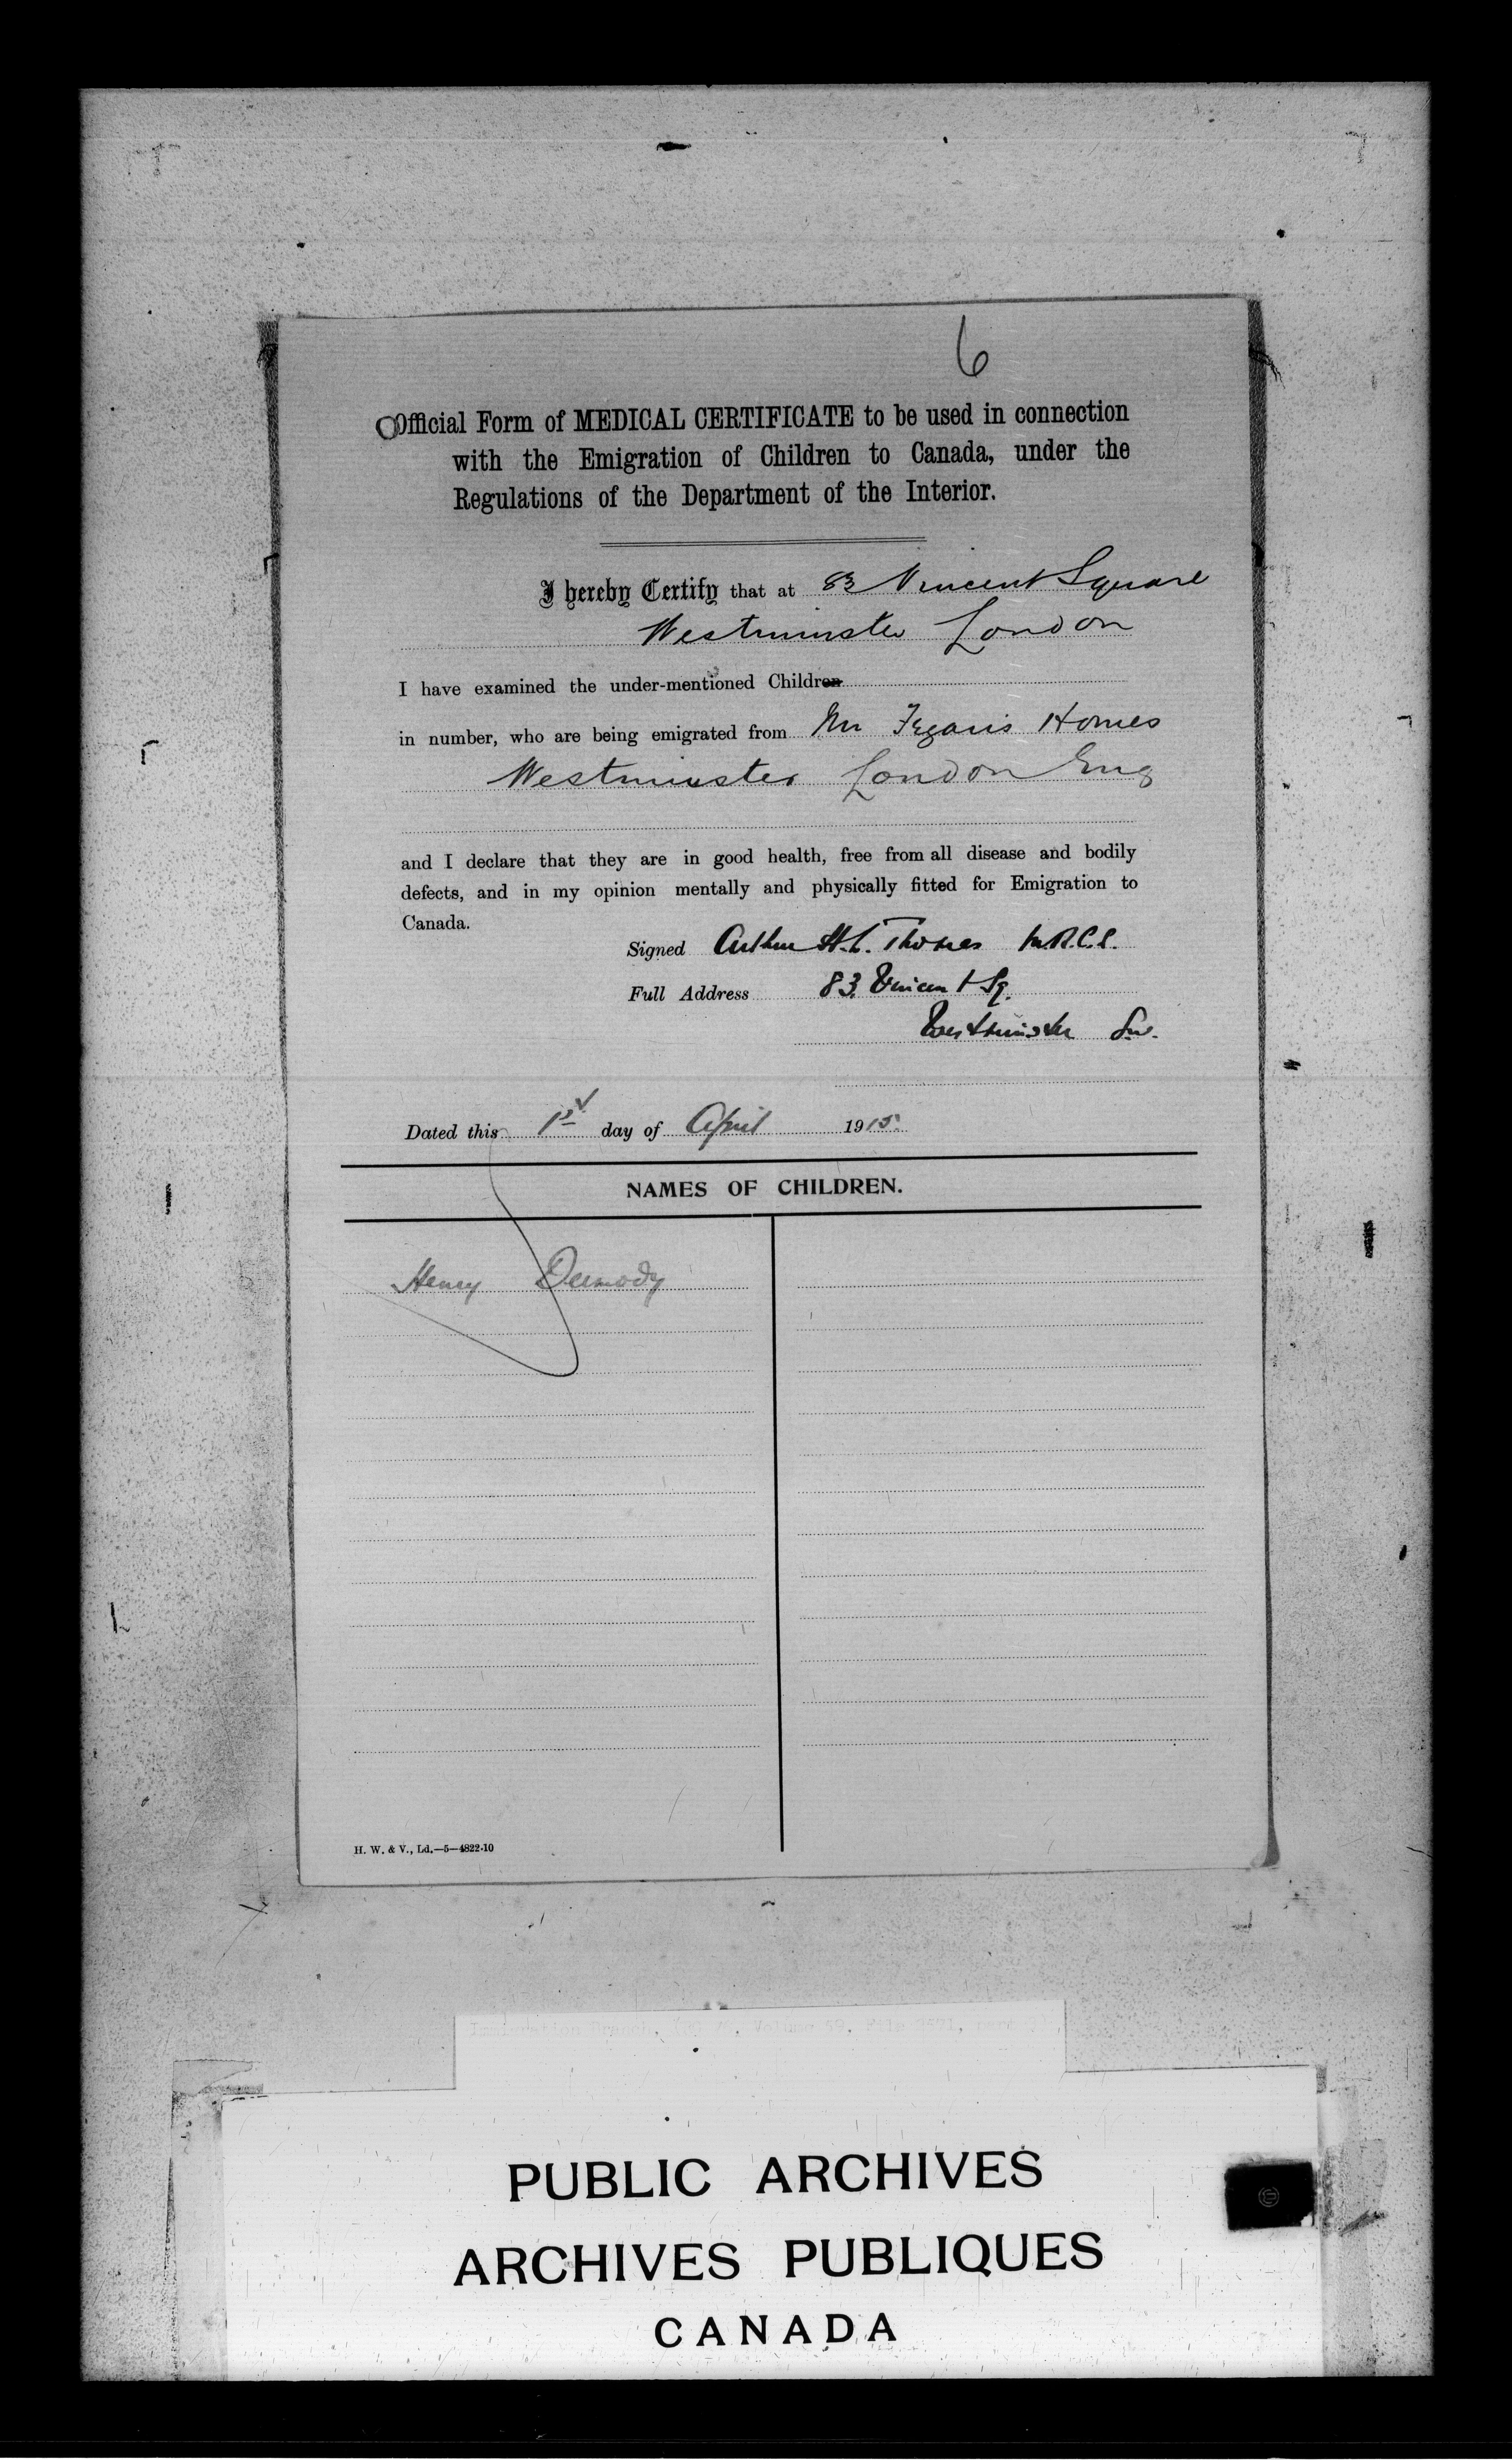 6
Official Form of MEDICAL CERTIFICATE to be used in connection
with the Emigration of Children to Canada, under the
Regulations of the Department of the Interior.
I hereby Certify that at 83 Vincent Square
Westminster London
I have examined the under-mentioned Children
in number, who are being emigrated from Mr Fegans Homes
Westminster London Eng
and I declare that they are in good health, free from all disease and bodily
defects, and in my opinion mentally and physically fitted for Emigration to
Canada.
Signed Arthur H. L. Thomas M.R.C.S.
Full Address 83. Vincent Sq.
Westminster S.W.
Dated this 1st day of April 1915.
NAMES OF CHILDREN.
Henry Dermody
H. W. & V., Ld.—5—4822-10
PUBLIC ARCHIVES
ARCHIVES PUBLIQUES
CANADA